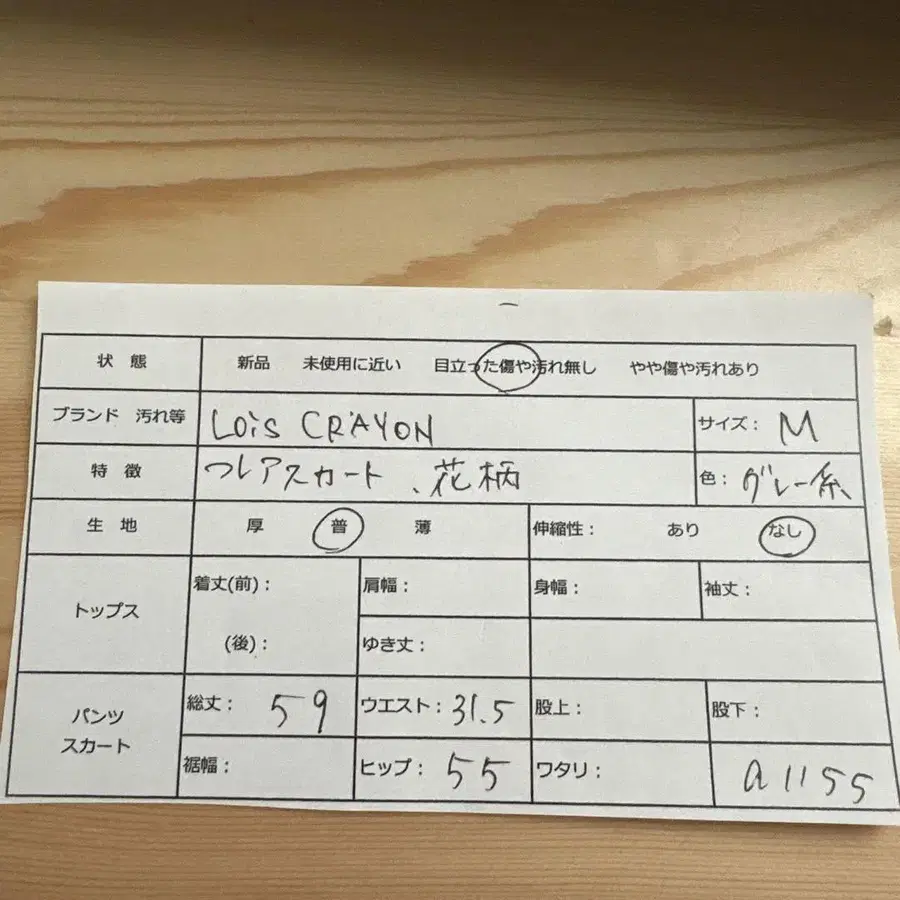 状 態 新品 未使用に近い 目立った傷や汚れ無し やや傷や汚れあり
ブランド 汚れ等 LOiS CRAYON サイズ： M
特 徴 フレアスカート、花柄 色： グレー系
生 地 厚 普 薄 伸縮性： あり なし
トップス 着丈(前)： 肩幅： 身幅： 袖丈：
(後)： ゆき丈：
パンツ スカート 総丈： 59 ウエスト： 31.5 股上： 股下：
裾幅： ヒップ： 55 ワタリ： a1155